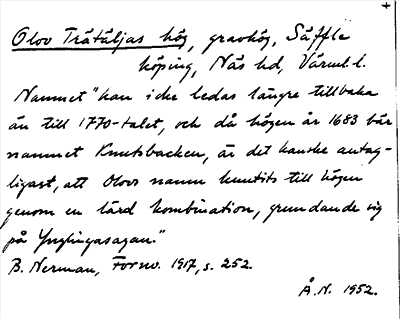 Olov Trätäljas hög, gravhög, Säffle
köping, Näs hd, Värml. l.
Namnet "kan icke ledas längre tillbaka
än till 1770-talet, och då högen år 1683 bär
namnet Knutsbacken, är det kanske antag-
ligast, att Olovs namn knutits till högen
genom en lärd kombination, grundande sig
på Ynglingasagan."
B. Nerman, Fornv. 1917, s. 252.
Å.N. 1952.